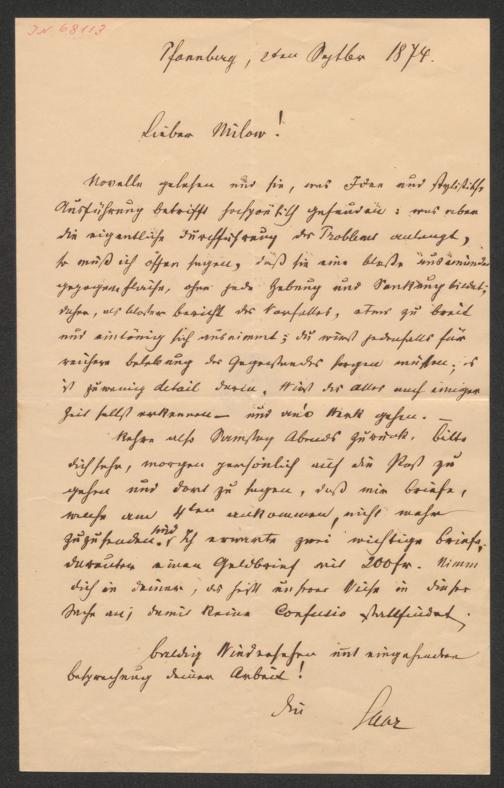 IN 68113
Pfannberg, 2ten Septbr 1874.
Lieber Milow!
Novelle gelesen und sie, was Idee und stylistische
Ausführung betrifft hochpoëtisch gefunden: was aber
die eigentliche Durchführung des Problems anlangt,
so muß ich offen sagen, daß sie eine bloße auseinander
gezogene Fläche, ohne jede Hebung und Senkung bildet;
daher, als bloßer Bericht des Vorfalles, etwas zu breit
und eintönig sich ausnimmt; du wirst jedenfalls für
reichere Belebung des Gegenstandes sorgen müssen; es
ist zu wenig Detail darin. Wirst das alles nach einiger
Zeit selbst erkennen — und an's Werk gehen. —
Kehre also Samstag Abends zurück. Bitte
dich sehr, morgen persönlich auf die Post zu
gehen und dort zu sagen, daß mir Briefe,
welche am 4ten ankommen, nicht mehr
zuzusenden sind. Ich erwarte zwei wichtige Briefe,
darunter einen Geldbrief mit 200 fr. Nimm
dich in deiner, das heißt unserer Sache in dieser
Sache an, damit keine Confusio stattfindet.
Baldig Wiedersehen und eingehendere
Besprechung deiner Arbeit!
Dein Saar